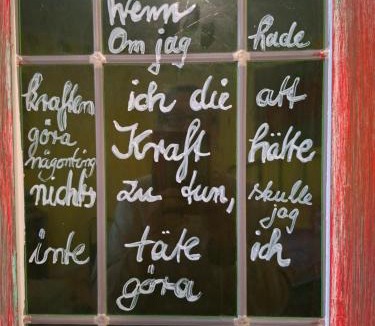 Wenn
Om jag hade
kraften ich die att
göra Kraft hätte
någonting
nichts zu tun, skulle
jag
inte täte ich
göra